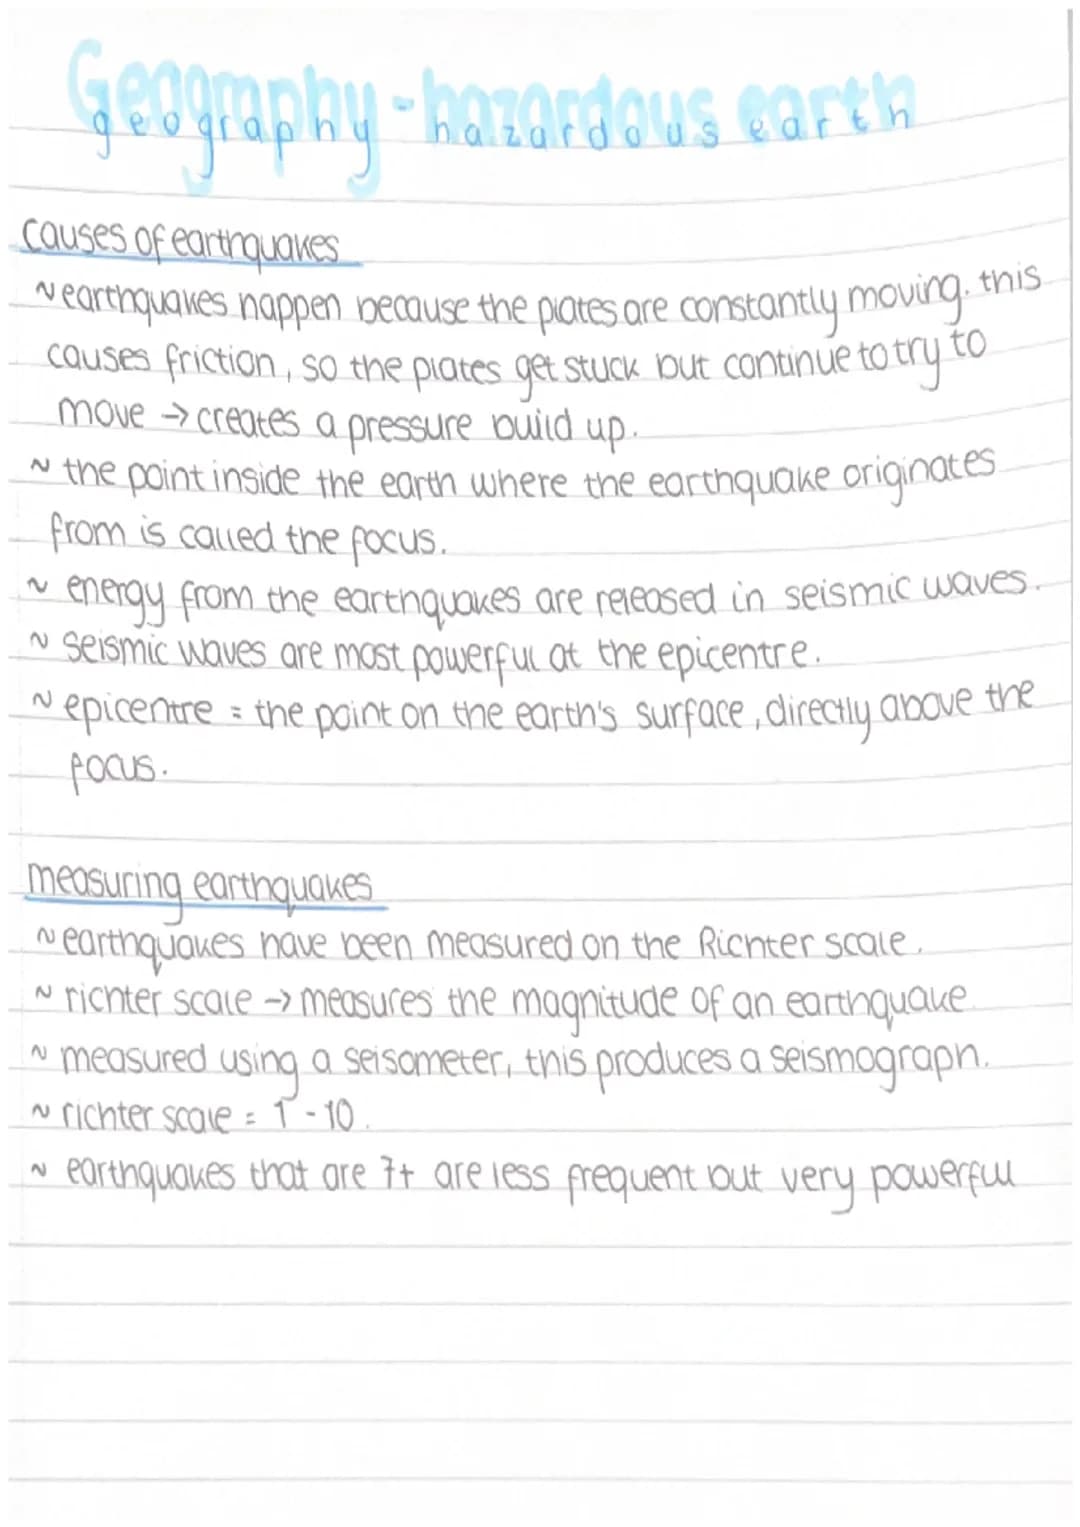 Geography - hazardous earth
geography hazardous earth
causes of earthquakes
~ earthquakes happen because the plates are constantly moving. this
causes friction, so the plates get stuck but continue to try to
move → creates a pressure build up.
~ the point inside the earth where the earthquake originates
from is called the focus.
~ energy from the earthquakes are released in seismic waves.
~ seismic waves are most powerful at the epicentre.
~ epicentre = the point on the earth's surface, directly above the
focus.
measuring earthquakes
~ earthquakes have been measured on the Richter scale.
~ richter scale → measures the magnitude of an earthquake
~ measured using a seisometer, this produces a seismograph.
~ richter scale = 1 - 10.
~ earthquakes that are 7+ are less frequent but very powerful